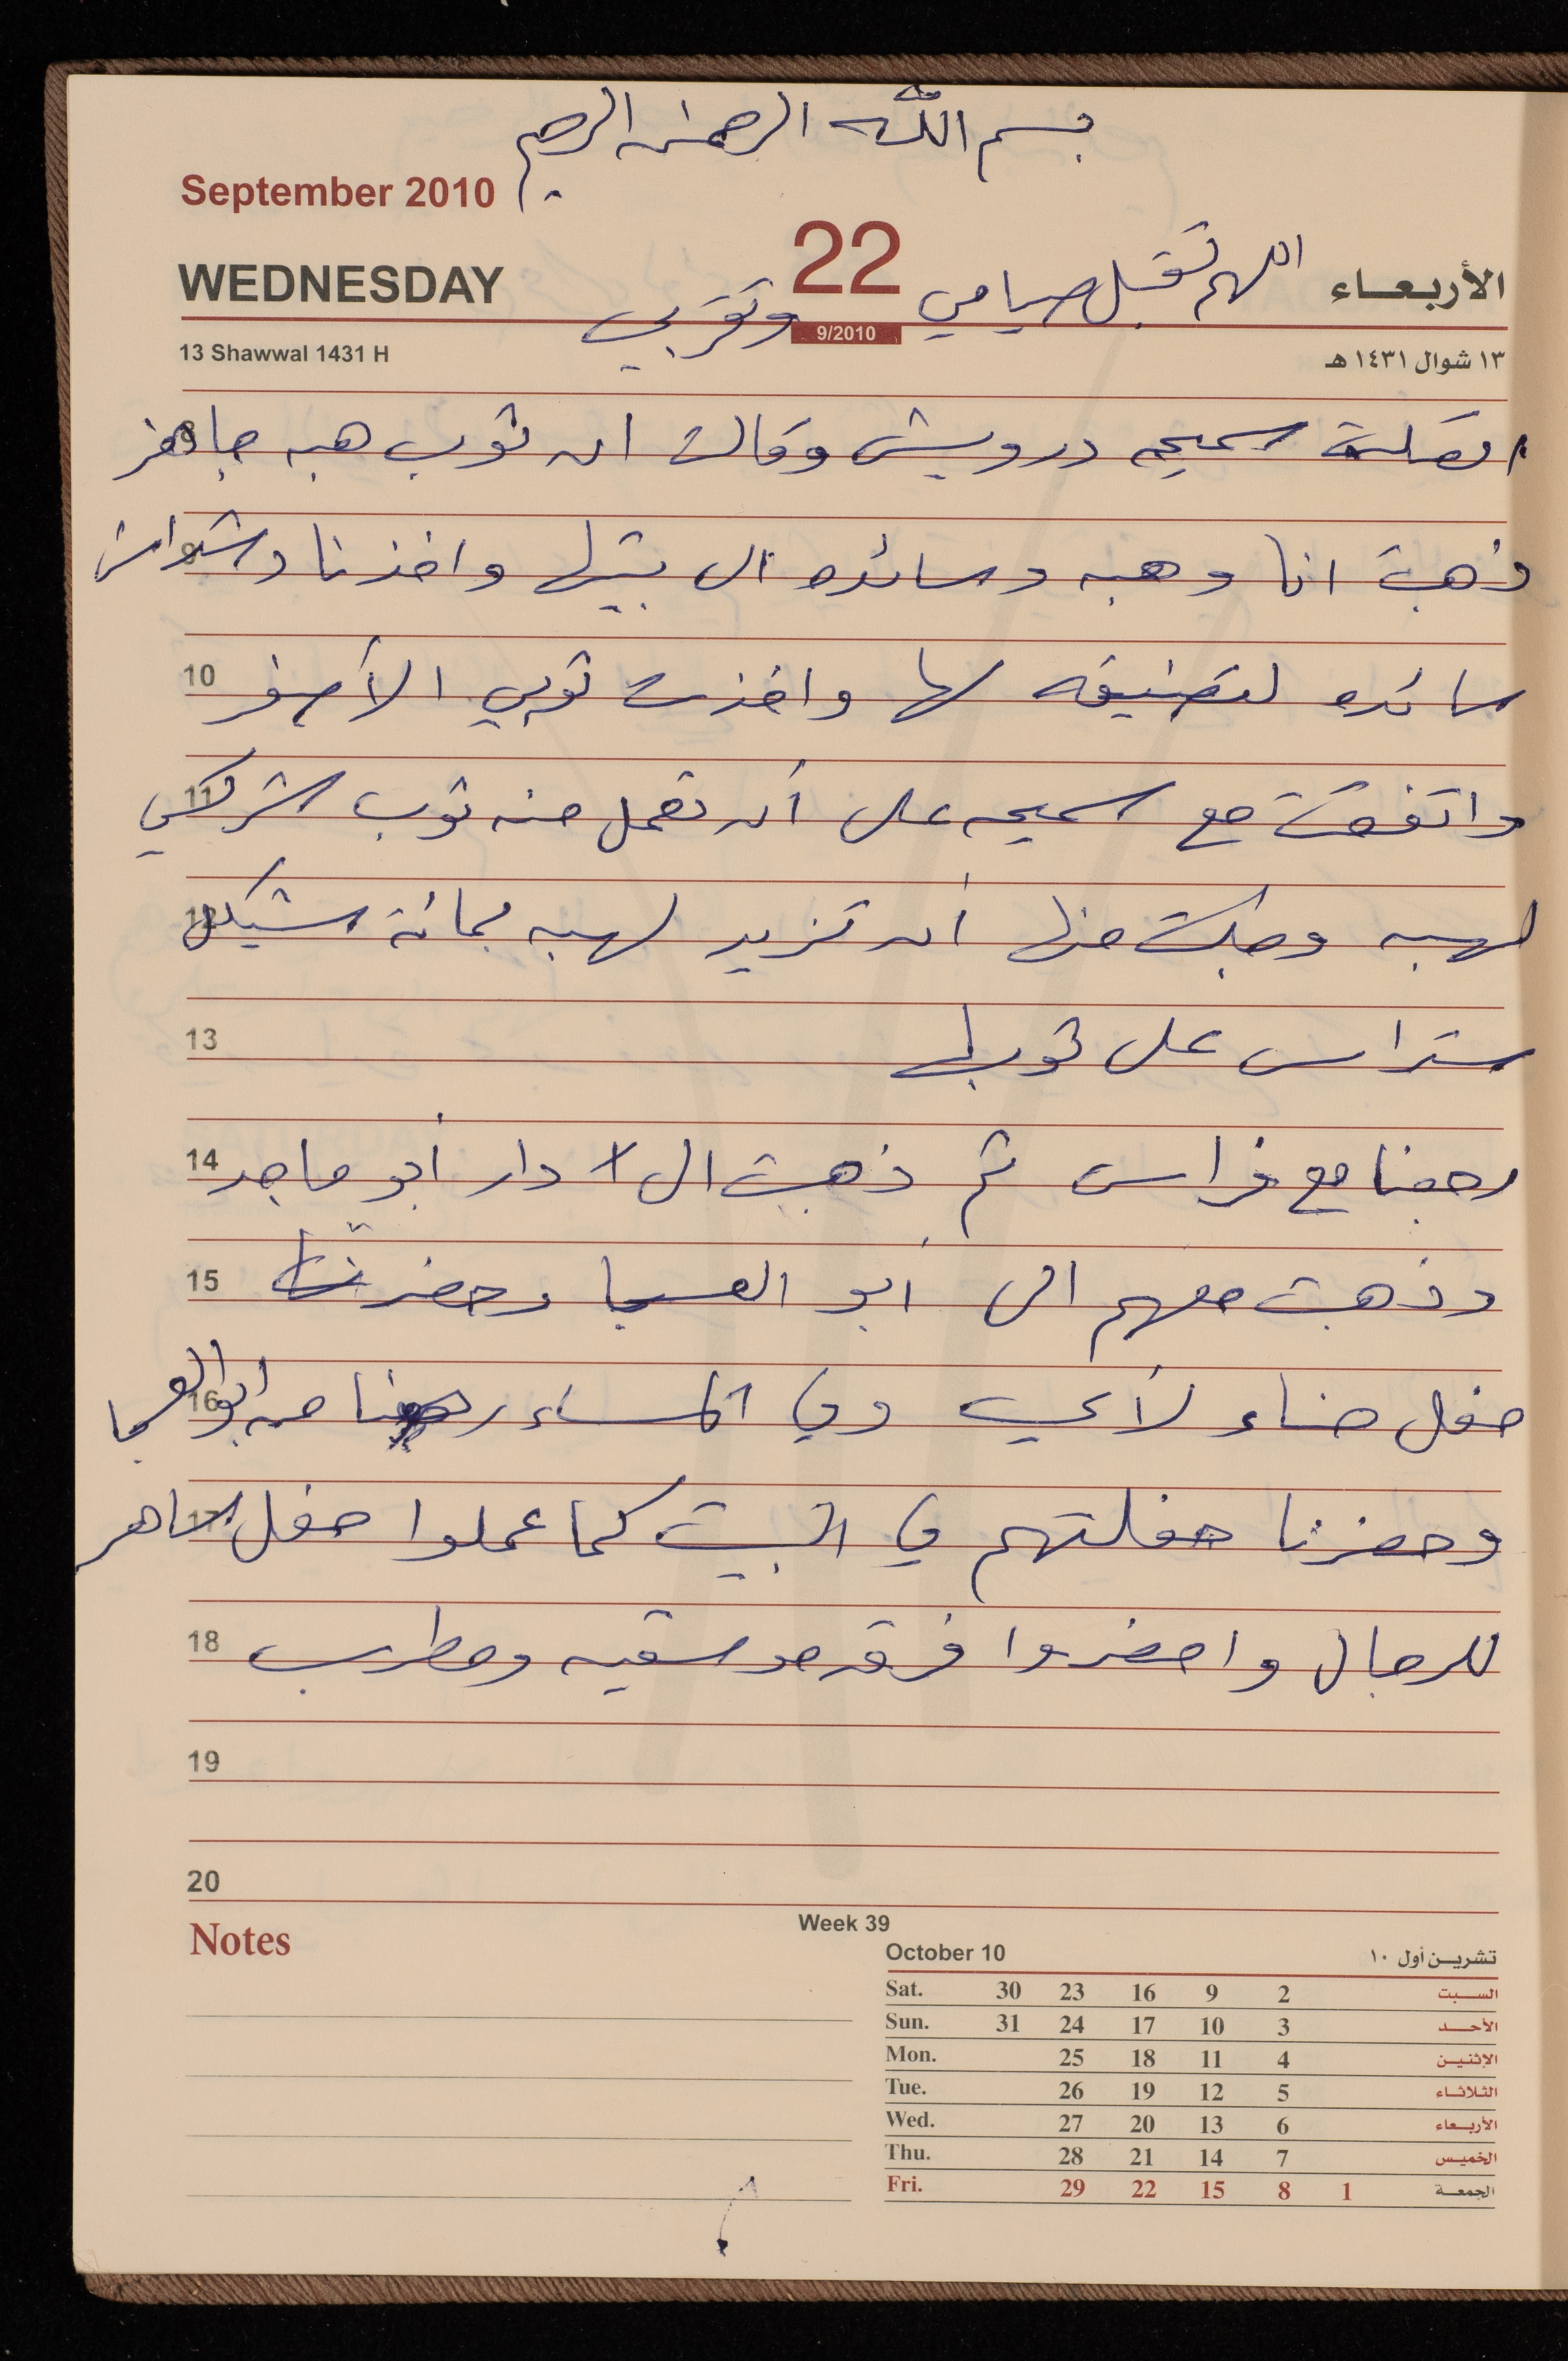 بسم الله الرحمن الرحيم
September 2010
WEDNESDAY 22 اللهم تقبل صيامي الأربعاء
وتقربي
9/2010
13 Shawwal 1431 H ١٣ شوال ١٤٣١ هـ
اتصلت سميحه درويش وقالت ان ثوب هبه جاهز
9 ذهبت انا وهبه وسائده الى بيتها واخذنا دشداش
10 سائده لتضيقه لها واخذت ثوبي الأصفر
11 واتفقت مع سميحه على أن تعمل منه ثوب شركسي
12 لهبه وطلبت منها أن تزيد لهبه بمائة شيكل
13 ستراس على ثوبها
14 رجعنا مع فراس ثم ذهبت الى دار أبو ماجد
15 وذهبت معهم الى أبو العسجا وحضرنا
16 حفل حناء لأي وفي المساء رجعنا من ابو العسجا
17 وحضرنا حفلتهم في البيت كما عملوا حفل ساهر
18 للرجال واحضروا فرقه موسقيه ومطرب
19
20
Notes
Week 39
October 10 تشرين أول ١٠
Sat. 30 23 16 9 2 السبت
Sun. 31 24 17 10 3 الأحد
Mon. 25 18 11 4 الإثنين
Tue. 26 19 12 5 الثلاثاء
Wed. 27 20 13 6 الأربعاء
Thu. 28 21 14 7 الخميس
Fri. 29 22 15 8 1 الجمعة